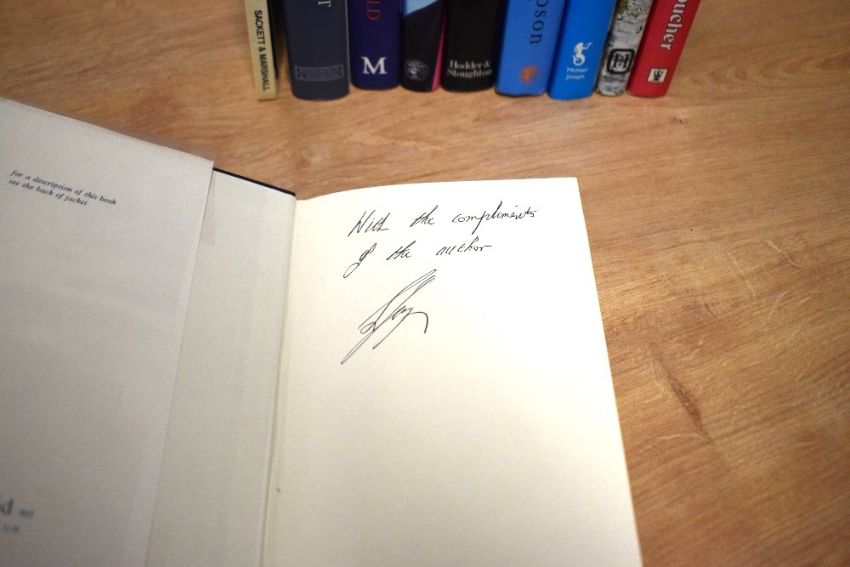 SACKETT & MARSHALL
T
LD
M
Hodder &
Stoughton
pson
Michael
Joseph
H
oucher
for a description of this book
see the back of jacket
With the compliments
of the author